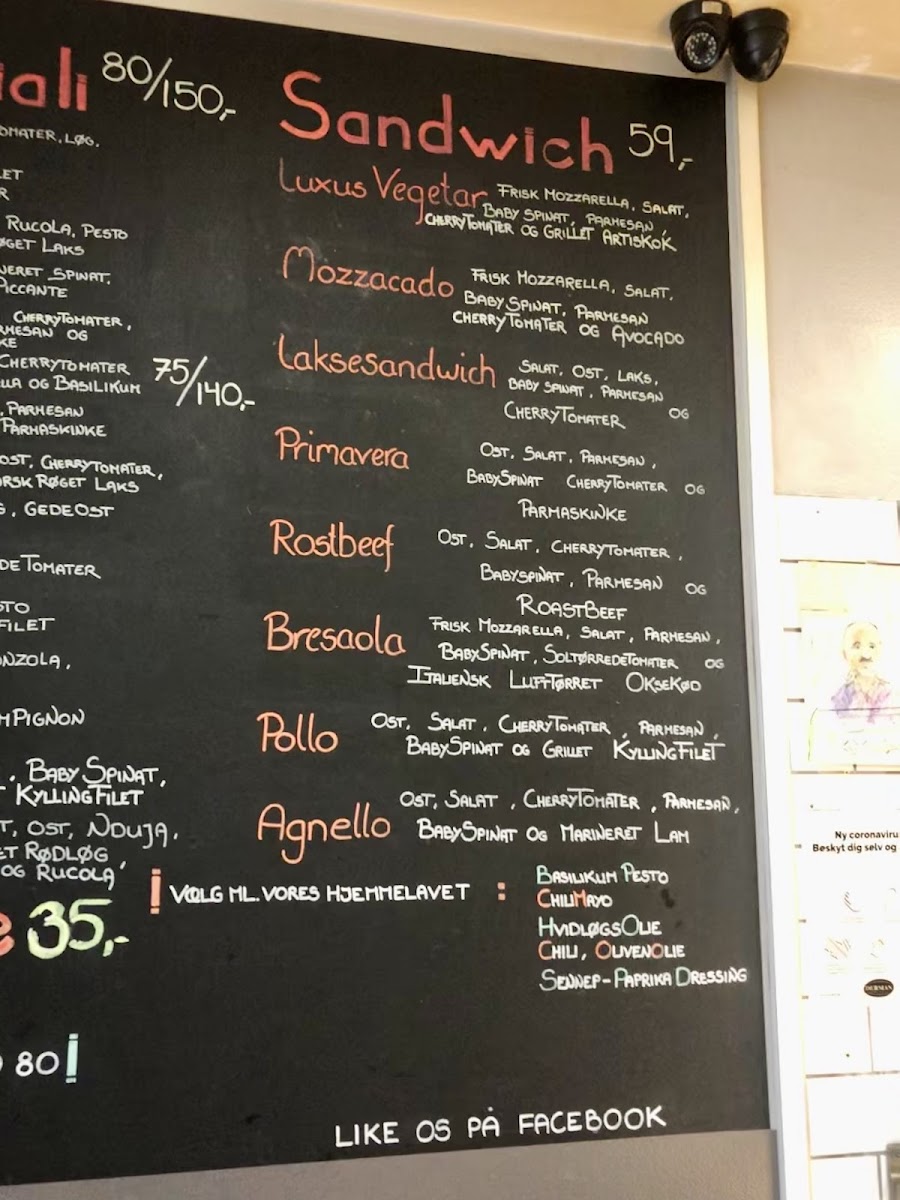 iali 80/150,-
OMATER, LØG.
LET
R
RUCOLA, PESTO
ØGET LAKS
NERET SPINAT.
PICCANTE
CHERRYTOMATER,
RMESAN OG
KE
CHERRYTOMATER
LLA OG BASILIKUM
75/140,-
, PARMESAN
PARMASKINKE
OST, CHERRYTOMATER,
ORSK RØGET LAKS
G, GEDEOST
DETOMATER
STO
FILET
ONZOLA,
MPIGNON
, BABY SPINAT,
KYLLINGFILET
T, OST, NDUJA,
ET RØDLØG
OG RUCOLA
e 35,-
80!
Sandwich 59,-
Luxus Vegetar FRISK MOZZARELLA, SALAT,
BABY SPINAT, PARMESAN,
CHERRYTOMATER OG GRILLET ARTISKOK
Mozzacado FRISK MOZZARELLA, SALAT,
BABYSPINAT, PARMESAN
CHERRYTOMATER OG AVOCADO
Laksesandwich SALAT, OST, LAKS,
BABY SPINAT, PARMESAN
CHERRYTOMATER OG
Primavera OST, SALAT, PARMESAN,
BABYSPINAT CHERRYTOMATER OG
PARMASKINKE
Rostbeef OST, SALAT, CHERRYTOMATER,
BABYSPINAT, PARMESAN OG
ROASTBEEF
Bresaola FRISK MOZZARELLA, SALAT, PARMESAN,
BABYSPINAT, SOLTØRREDETOMATER OG
ITALIENSK LUFTTØRRET OKSEKØD
Pollo OST, SALAT, CHERRYTOMATER, PARMESAN,
BABYSPINAT OG GRILLET KYLLINGFILET
Agnello OST, SALAT, CHERRYTOMATER, PARMESAN,
BABYSPINAT OG MARINERET LAM
! VÆLG ML. VORES HJEMMELAVET : BASILIKUM PESTO
CHILIMAYO
HVIDLØGSOLIE
CHILI, OLIVENOLIE
SENNEP-PAPRIKA DRESSING
LIKE OS PÅ FACEBOOK
Ny coronaviru
Beskyt dig selv og